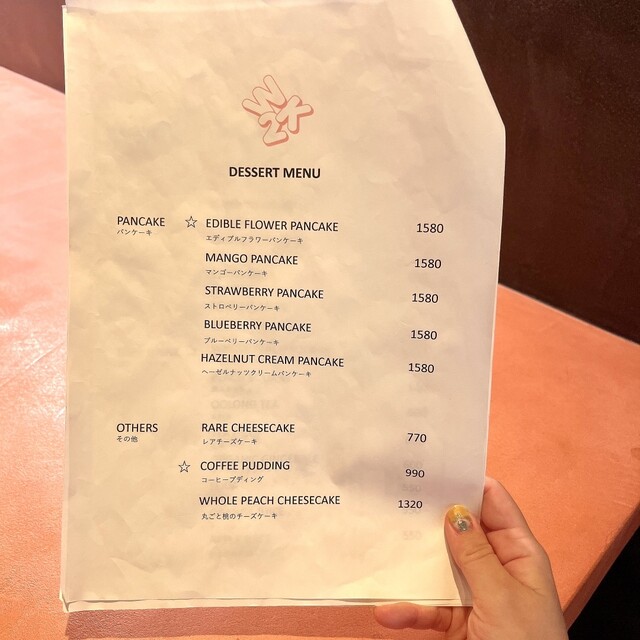 W
2K
DESSERT MENU
PANCAKE
パンケーキ
☆ EDIBLE FLOWER PANCAKE 1580
エディブルフラワーパンケーキ
MANGO PANCAKE 1580
マンゴーパンケーキ
STRAWBERRY PANCAKE 1580
ストロベリーパンケーキ
BLUEBERRY PANCAKE 1580
ブルーベリーパンケーキ
HAZELNUT CREAM PANCAKE 1580
ヘーゼルナッツクリームパンケーキ
OTHERS
その他
RARE CHEESECAKE 770
レアチーズケーキ
☆ COFFEE PUDDING 990
コーヒープディング
WHOLE PEACH CHEESECAKE 1320
丸ごと桃のチーズケーキ